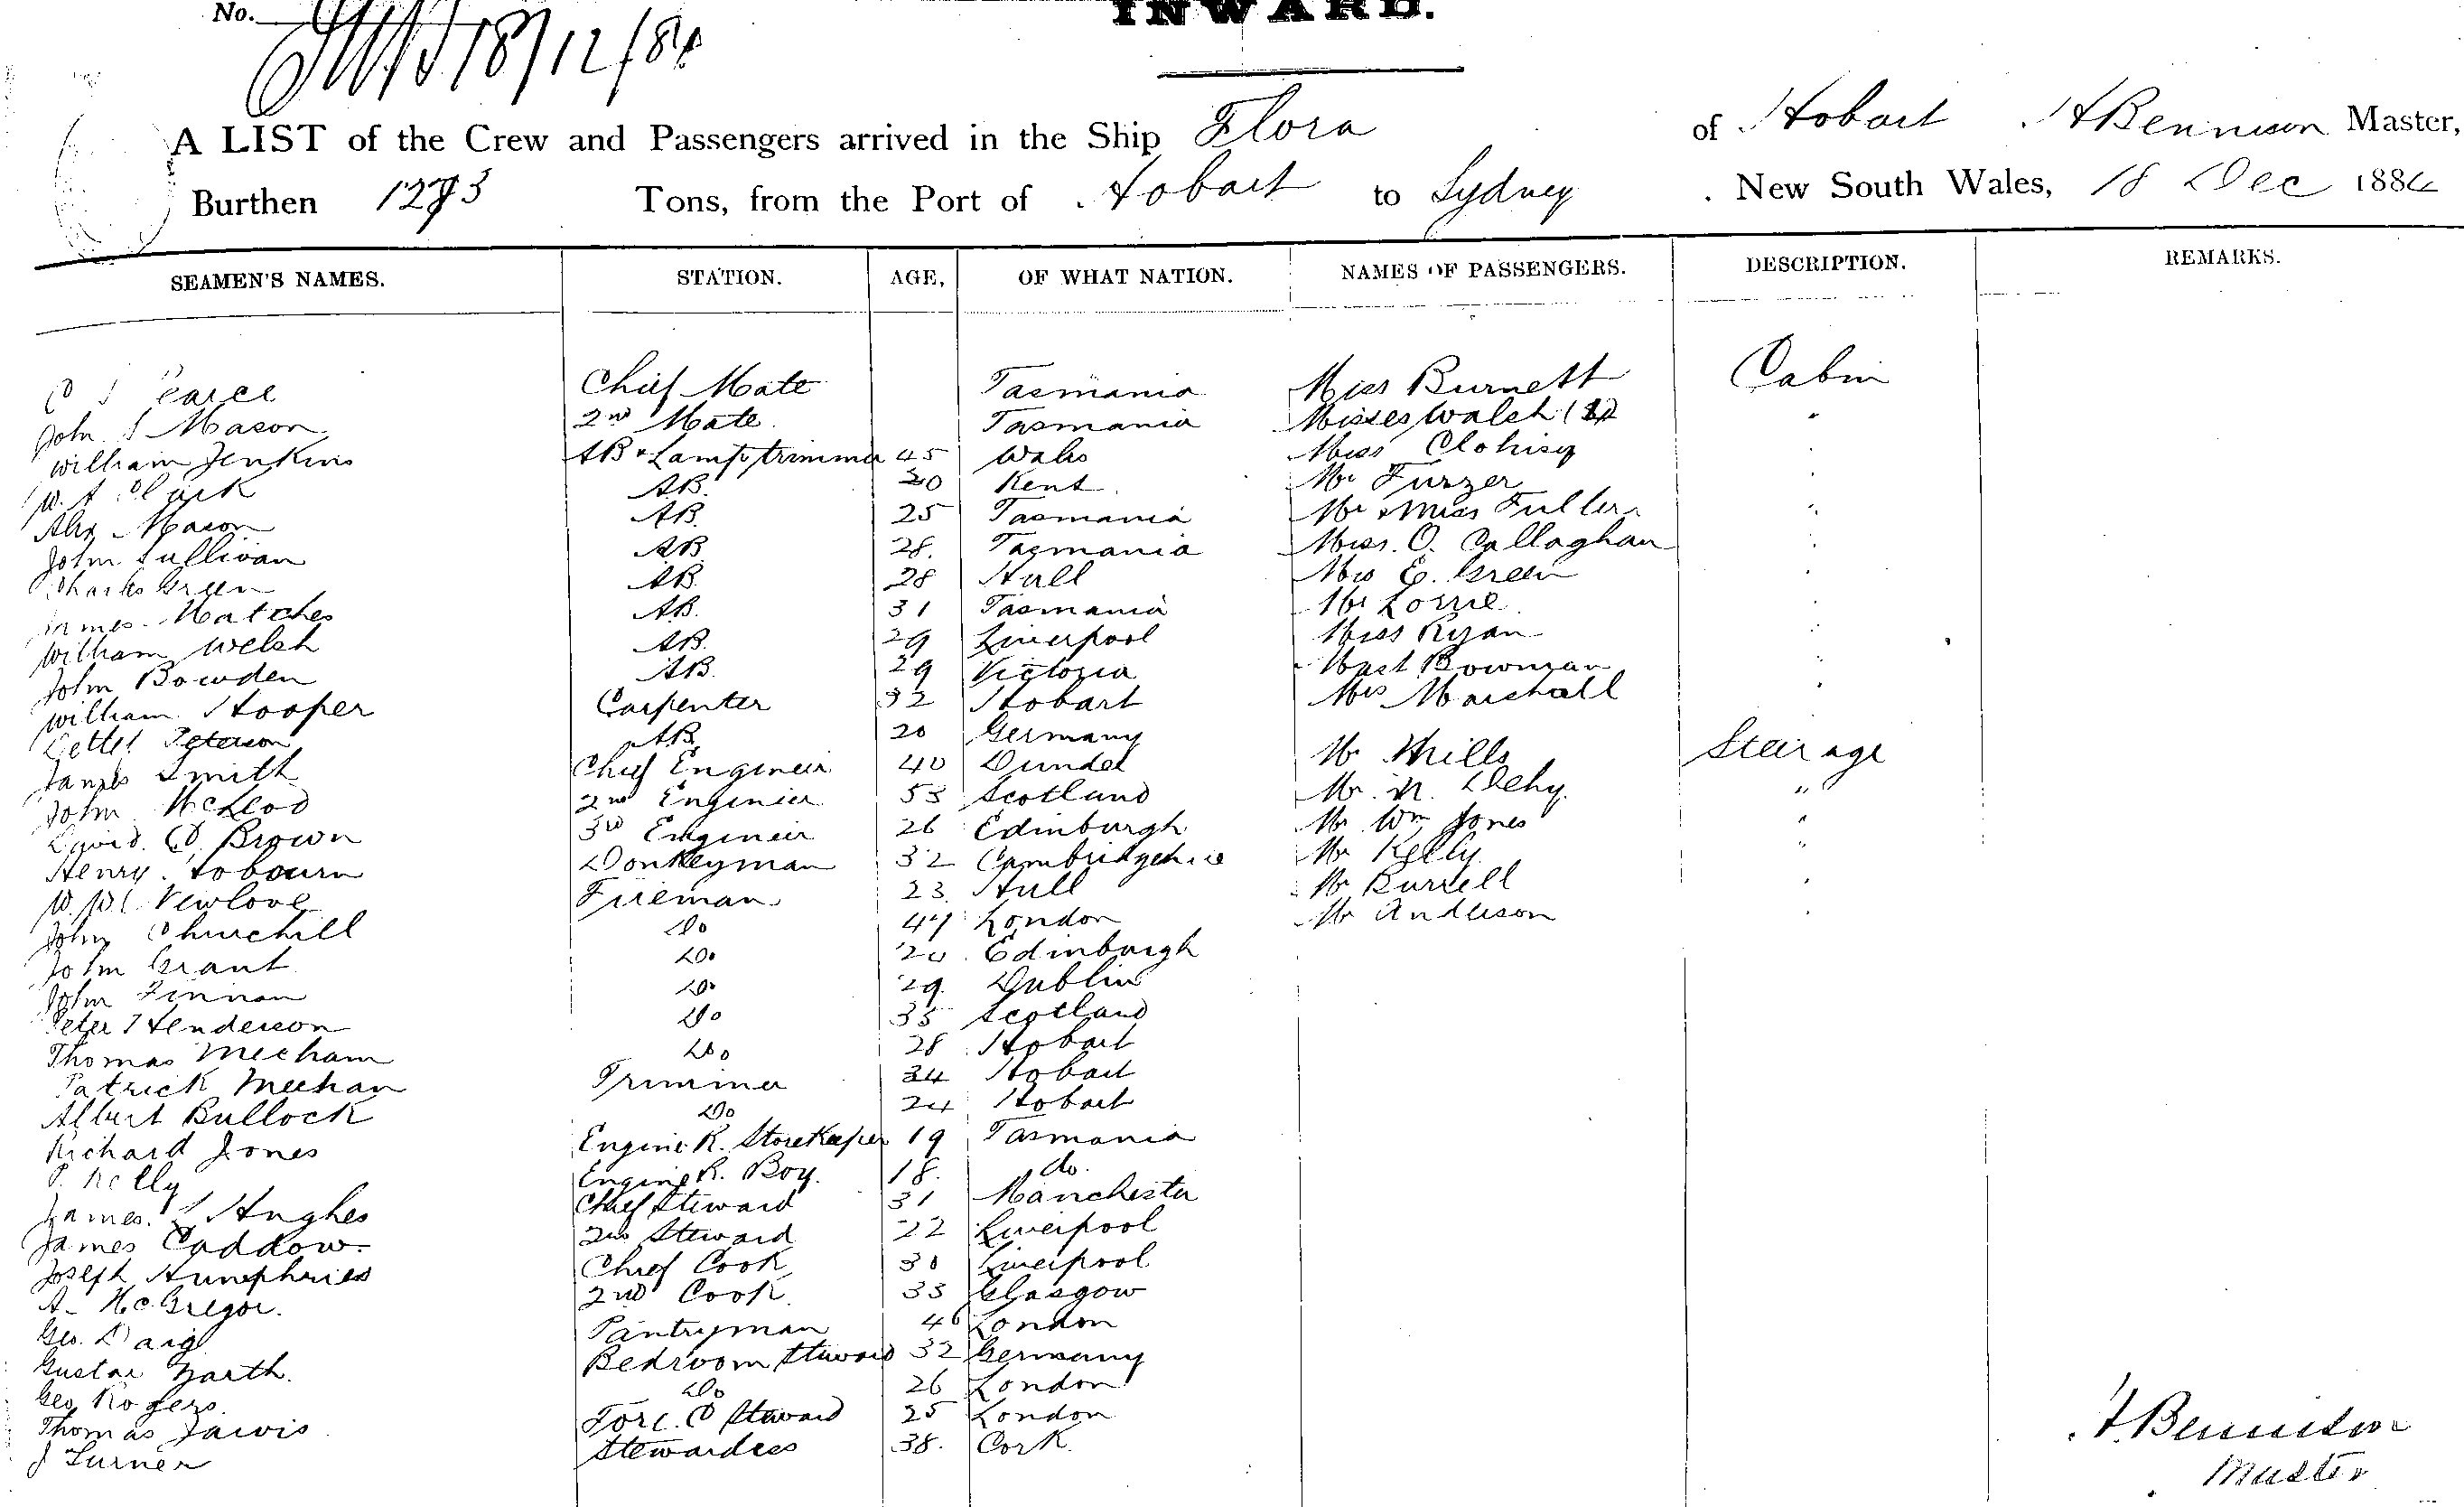 No.
INWARD.
18/12/86
A LIST of the Crew and Passengers arrived in the Ship Flora of Hobart H Bennison Master,
Burthen 1273 Tons, from the Port of Hobart to Sydney New South Wales, 18 Dec 1886
SEAMEN'S NAMES. STATION. AGE, OF WHAT NATION. NAMES OF PASSENGERS. DESCRIPTION. REMARKS.
Pearce Chief Mate Tasmania Miss Burnett Cabin
John S Mason 2nd Mate Tasmania Misses Walch (2) "
William Jenkins AB & Lamptrimmer 45 Wales Miss Clohisy "
W. A Clark AB. 20 Kent Mr Furzer "
Alex Mason AB. 25 Tasmania Mr & Miss Fuller "
John Sullivan AB 28. Tasmania Miss. O. Callaghan "
Charles Green AB. 28 Hull Mrs E. Green "
James Matches AB. 31 Tasmania Mr Lorrie "
William Welsh AB. 29 Liverpool Miss Ryan "
John Bowden AB. 29 Victoria Mast Bowman "
William Hooper Carpenter 32 Hobart Mrs Marshall "
Peterson AB. 20 Germany
James Smith Chief Engineer 40 Dundee Mr Mills Steerage
John McLeod 2nd Engineer 53 Scotland Mr. N. "
David. Brown 3rd Engineer 26 Edinburgh Mr Wm Jones "
Henry Hobourn Donkeyman 32 Cambridgeshire Mr Kelly "
Newlove Fireman 23. Hull Mr Burrell "
John Churchill Do 47 London Mr Anderson "
John Grant Do. 20 Edinburgh
John Finnan Do. 29. Dublin
Peter Henderson Do 35 Scotland
Thomas Mecham Do 28 Hobart
Patrick Meehan Trimmer 34 Hobart
Albert Bullock Do 24 Hobart
Richard Jones Engine R. Storekeeper 19 Tasmania
P. Kelly Engine R. Boy. 18. do.
James. Hughes Chief Steward 31 Manchester
James Caddow 2nd Steward 22 Liverpool
Joseph Humphries Chief Cook 30 Liverpool
A. McGregor. 2nd Cook 33 Glasgow
Geo. Daig Pantryman 46 London
Gustav Barth. Bedroom Steward 32 Germany
Geo Rogers. Do 26 London
Thomas Jarvis Fore. C Steward 25 London
J Turner Stewardess 38. Cork.
H Bennison
Master